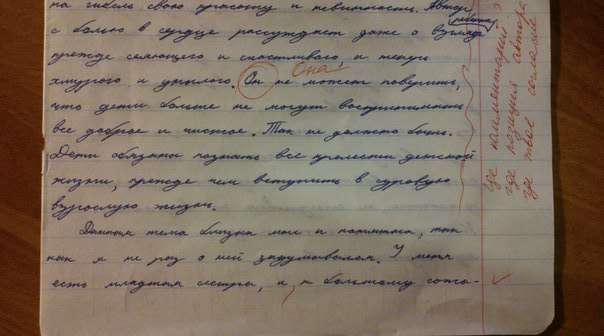 на гибель свою красоту и невинность. Автор
с болью в сердце рассуждает даже о взгляде
ребенка,
прежде сияющего и счастливого и теперь
хмурого и унылого. Он не может поверить,
Она!
что дети больше не могут воспринимать
все доброе и чистое. Так не должно быть.
Дети обязаны познать все прелести детской
жизни, прежде чем вступить в суровую
взрослую жизнь.
Данная тема близка мне и понятна, так
как я не раз о ней задумывался. У меня
есть младшая сестра, и, к большому сожа-
где комментарий?
где позиция автора
где твое согласие